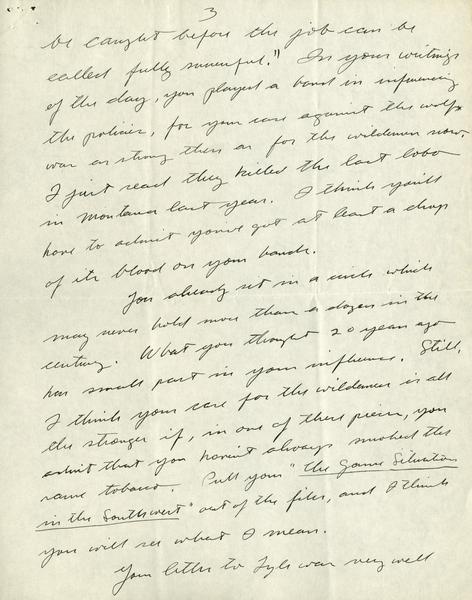 3
be caught before the job can be
called fully successful." In your writings
of the day, you played a hand in influencing
the policies, for your case against the wolf
was as strong then as for the wilderness now.
I just read they killed the last lobo
in Montana last year. I think you'll
have to admit you've got at least a drop
of its blood on your hands.
You already sit in a circle which
may never hold more than a dozen in the
century. What you thought 20 years ago
has small part in your influence. Still,
I think your case for the wilderness is all
the stronger if, in one of these pieces, you
admit that you haven't always smoked the
same tobacco. Pull your "the Game Situation
in the Southwest" out of the files, and I think
you will see what I mean.
Your letter to Lyle was very well